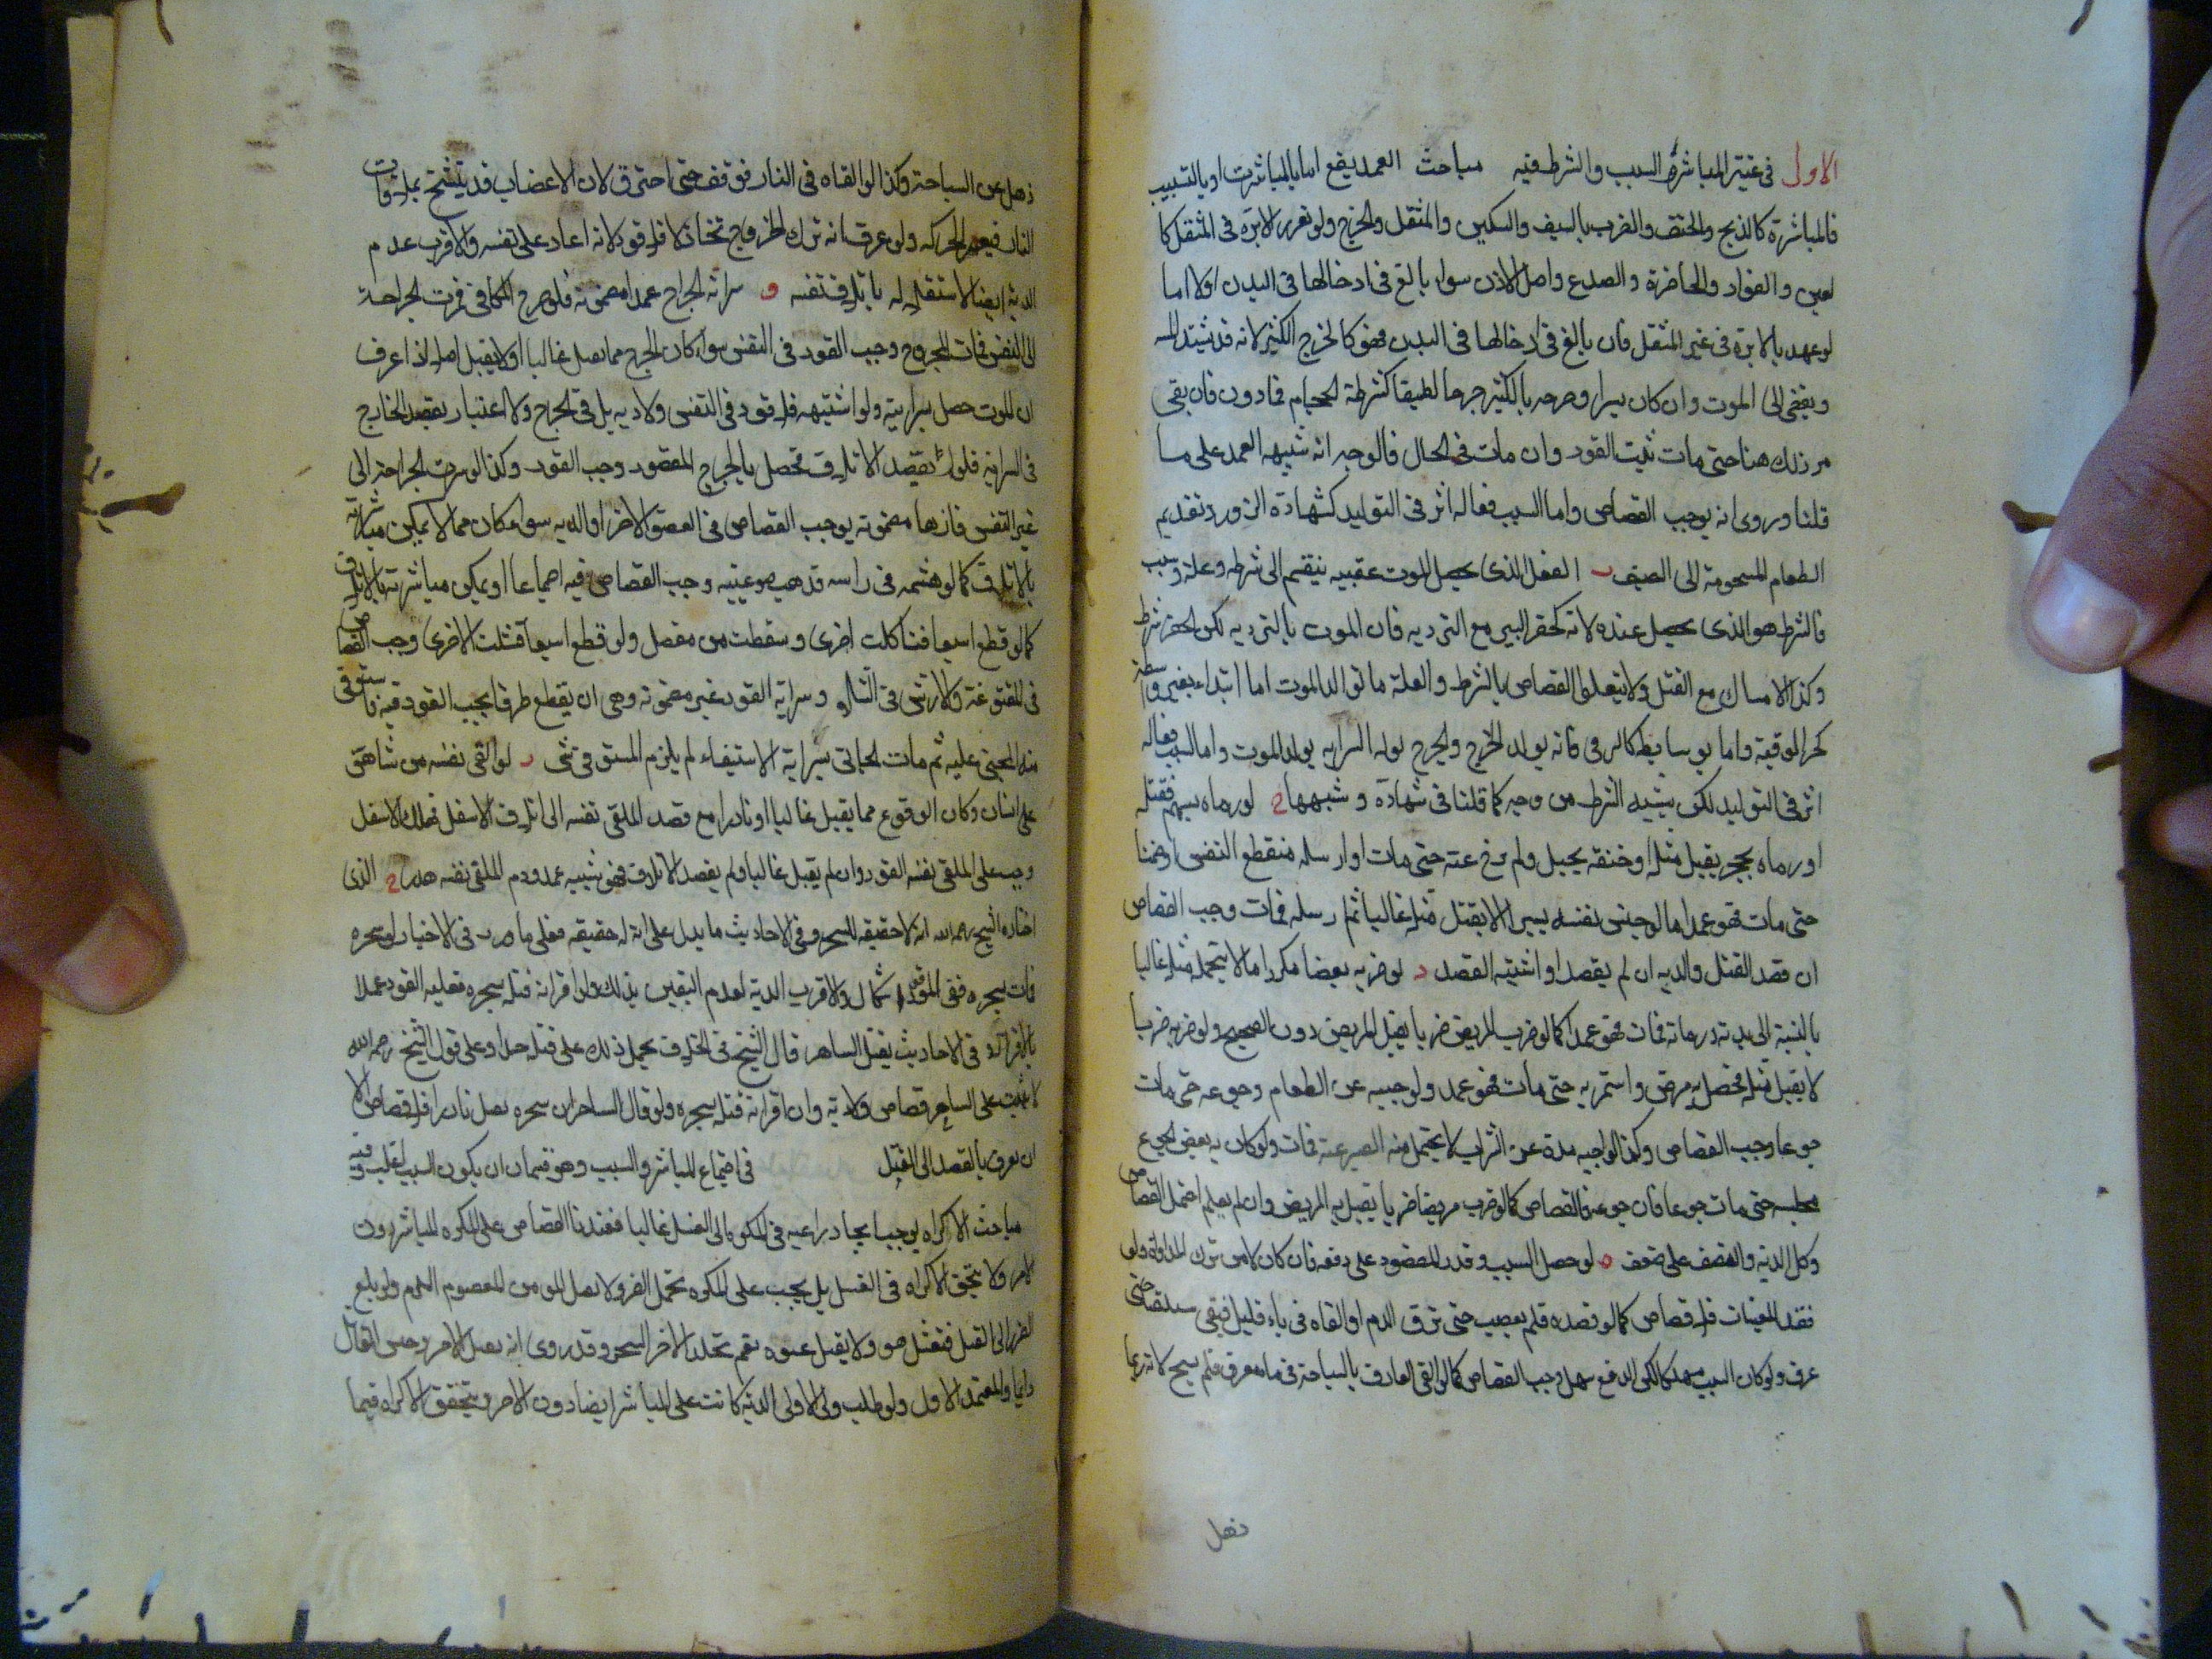 الاولى فى غنية المباشرة السبب والشرط وفيه مباحث العمد يقع اما بالمباشرت او بالتسبيب
فالمباشرة كالذبح والخنق والضرب بالسيف والسكين والمثقل والجرح ولو بغرز الابرة فى المثقل كا
لعين والفواد والخاصرة والصدع واصل الاذن سواء بالغ فى ادخالها فى البدن اولا اما
لو عهد بالابرة فى غير المثقل فان بالغ فى ادخالها فى البدن فهو كالجرح الكثير لانه قد يشتد المه
ويفضى الى الموت وان كان يسيرا وجرحه بالكثير جرحا لطيفا كشرطة الحجام فما دون فان بقى
من ذلك هنا حتى مات ثبت القود وان مات فى الحال فالوجه انه شبيه العمد على ما
قلنا وروى انه يوجب القصاص واما السبب فما له اثر فى التوليد كشهادة الزور وتقديم
الطعام المسمومة الى الضيف ب الفعل الذى يحصل الموت عقيبه ينقسم الى شرط وعلة وسبب
فالشرط هو الذى يحصل عنده لا به كحفر البير مع التردية فان الموت بالتردية لكن الحفر شرط
وكذا الامساك مع القتل ولا يتعلق القصاص بالشرط والعلة ما تولد الموت اما ابتداء بغير واسطة
كحز الرقبة واما بوسايط كالرمى فانه يولد الجرح والجرح يولد السراية يولد الموت واما السبب فماله
اثر فى التوليد لكن يشبه الشرط من وجه كما قلنا فى شهادة وشبهها ج لو رماه بسهم فقتله
او رماه بحجر يقتل مثله او خنقه بحبل ولم يرخ عنه حتى مات او ارسله منقطع النفس او ضمنا
حتى مات فهو عمد اما لو حبس نفسه يسيرا لا يقتل مثله غالبا ثم ارسله فمات وجب القصاص
ان قصد القتل والدية ان لم يقصد او اشتبه القصد د لو ضربه بعصا مكررا ما لا يتحمل مثله غالبا
بالنسبة الى بدنه وزمانه فمات فهو عمد كما لو ضرب المريض ضربا يقتل المريض دون الصحيح ولو ضربه ضربا
لا يقتل مثله فحصل به مرض واستمر به حتى مات فهو عمد ولو حبسه عن الطعام وجوعه حتى مات
جوعا وجب القصاص وكذا لو حبسه مدة عن الشراب لا يحتمل منه الصبر عنه فمات ولو كان به بعض الجوع
فحبسه حتى مات جوعا فان جوعه فالقصاص كما لو ضرب مريضا ضربا يقتل به المريض وان لم يعلم احتمل القصاص
وكل الدية والنصف على ضعف ه لو حصل السبب وقدر المقصود على دفعه فان كان لا من ترك المداواة ولو
فقد المعينات فلا قصاص كما لو فصده فلم يعصب حتى نزف الدم او القاه فى ماء قليل فبقى مستلقيا حتى
غرق ولو كان السبب مهلكا لكن الدفع سهل وجب القصاص كما لو القى العارف بالسباحة فى ماء مغرق فلم يسبح لانه ربما
ذهل
ذهل عن السباحة وكذا لو القاه فى النار فوقف حتى احترق لان الاعضاب قد يتشنج بملاقات
النار فيعسر الحركه ولو عرف انه ترك الخروج تخاذلا فلا قود لانه اعاد على نفسه والاقرب عدم
الدية ايضا لاستقلاله باتلاف نفسه و سراية الجراح عمدا مضمونة فلو جرح المكافى فسرت الجراحة
الى النفس فمات المجروح وجب القود فى النفس سواء كان الجرح مما يقتل غالبا او لا يقتل اصلا اذا عرف
ان الموت حصل بسرايته ولو اشتبه فلا قود فى النفس ولا دية بل فى الجراح ولا اعتبار بقصد الخارج
فى السراية فلو لم يقصد الاتلاف فحصل بالجراح المقصود وجب القود وكذا لو سرت الجراحة الى
غير النفس فانها مضمونة يوجب القصاص فى العضو الاخر او الدية سواء كان مما لا يمكن مباشرته
بالاتلاف كما لو هشمه فى راسه فذهب ضوء عينيه وجب القصاص فيه اجماعا او يمكن مباشرته بالاتلاف
كما لو قطع اصبعا فتاكلت اخرى وسقطت من مفصل ولو قطع اصبعا فشلت الاخرى وجب القصاص
فى المقطوعة والارش فى الشلاء وسراية القود غير مضمونة وهى ان يقطع طرفا يجب القود فيه فاستوفى
منه المجنى عليه ثم مات الجانى بسراية الاستيفاء لم يلزم المستوفى شى ر لو القى نفسه من شاهق
على انسان وكان الوقوع مما يقتل غالبا او نادرا مع قصد الملقى نفسه الى اتلاف الاسفل فهلك الاسفل
وجب على الملقى نفسه القود وان لم يقتل غالبا ولم يقصد الاتلاف فهو شبيه عمد ودم الملقى نفسه هدر ح الذى
اختاره الشيخ رحمه الله انه لا حقيقه للسحر وفى الاحاديث ما يدل على ان له حقيقه فعلى ما ورد فى الاخبار لو سحره
فمات بسحره ففى القود اشكال والاقرب الدية لعدم اليقين بذلك ولو اقر انه قتله بسحره فعليه القود عملا
باقراره وفى الاحاديث يقتل الساحر قال الشيخ فى الخلاف يحمل ذلك على قتله حدا وعلى قول الشيخ رحمه الله
لا يثبت على الساحر قصاص ولا دية وان اقر انه قتله بسحره ولو قال الساحر ان سحره يقتل نادرا فلا قصاص الا
ان يعرف بالقصد الى القتل فى اجتماع المباشر والسبب وهو قسمان ان يكون السبب اغلب وفيه
مباحث الاكراه يوجب ايجاد داعيه فى المكره الى القتل غالبا فعندنا القصاص على المكره المباشر دون
الامر ولا يتحقق الاكراه فى القتل بل يجب على المكره تحمل الضرر ولا يقتل المومن المعصوم الدم ولو بلغ
الضرر الى القتل فيقتل هو ولا يقتل غيره نعم يخلد الامر السجن وقد روى انه يقتل الامر وحبس القاتل
دايما والمعتمد الاول ولو طلب ولى الاولى الدية كانت على المباشر ايضا دون الامر ويتحقق الاكراه فيما